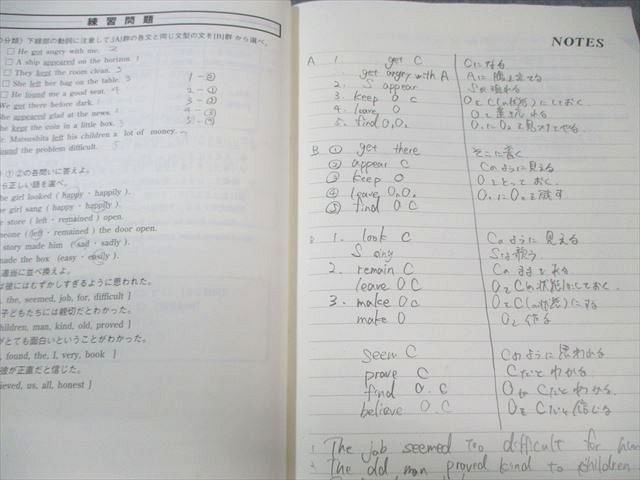 練習問題
の分類〉下線部の動詞に注意して,[A]群の各文と同じ文型の文を[B]群から選べ。
□ He got angry with me. 2
□ A ship appeared on the horizon. 1
□ They kept the room clean. 5
□ She left her bag on the table. 3
□ He found me a good seat. 4
We got there before dark. 1
She appeared glad at the news. 2
She kept the coin in a little box. 3
Mr. Matsushita left his children a lot of money.
found the problem difficult. 5
1-②
2-①
3-⑤
4-③
5-④
①②の各問いに答えよ。
ら正しい語を選べ。
he girl looked ( happy・happily ).
he girl sang ( happy・happily ).
e store ( left・remained ) open.
meone ( left・remained ) the door open.
story made him ( sad・sadly ).
made the box ( easy・easily ).
適当に並べ換えよ。
は彼にはむずかしすぎるように思われた。
, the, seemed, job, for, difficult ]
子どもたちには親切だとわかった。
hildren, man, kind, old, proved ]
がとても面白いということがわかった。
, found, the, I, very, book ]
彼が正直だと信じた。
ieved, us, all, honest ]
NOTES
A 1. get C Cになる
get angry with A Aに腹を立てる
2. S appear Sが現れる
3. keep O C OをC(の状態)にしておく
4. leave O Oを置き忘れる
5. find O₁O₂ O₁にO₂を見つけてやる
B ① get there そこに着く
② appear C Cのように見える
③ keep O Oをとっておく
④ leave O₁O₂ O₁にO₂を残す
⑤ find O C
2 1. look C Cのように見える
S sing Sは歌う
2. remain C Cのままである
leave O C OをCの状態にしておく
3. make O C OをC(の状態)にする
make O Oを作る
seem C Cのように思われる
prove C Cだとわかる
find O C OがCだとわかる
believe O C OをCだと信じる
1 The job seemed too difficult for
2 The old man proved kind to children